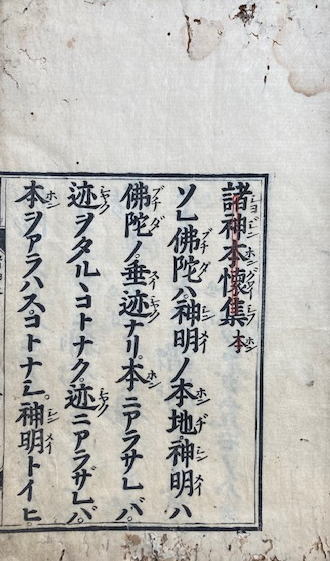 諸神本懐集 本
ソレ佛陀ハ神明ノ本地。神明ハ
佛陀ノ。垂迹ナリ。本ニアラサレバ。
迹ヲタルヽコトナク。迹ニアラザレバ。
本ヲアラハス。コトナシ。神明トイヒ。